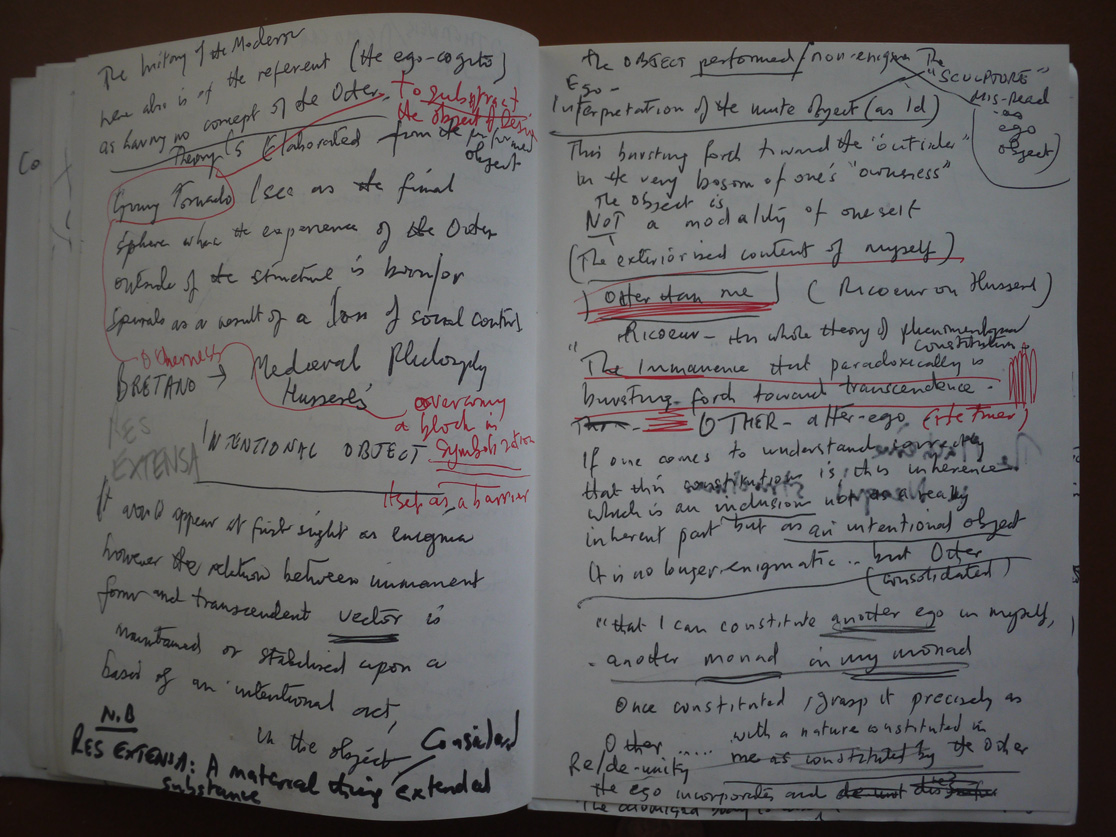 The history of the Modern
here also is of the referent (the ego-cogito)
as having no concept of the Other.
to substract
the object of Desire
Theory is Elaborated from the
object
Co
Going Tornado I see as the final
sphere where the experience of the Other
outside of the structure is born/or
spirals as a result of a loss of social control
otherness
BRETANO → Medieval Philosphy
Husserl's
overcoming
a block in
symbolization
itself as a barrier
RES
EXTENSA
INTENTIONAL OBJECT
It would appear at first sight as enigma
however the relation between immanent
form and transcendent vector is
maintained or stabilised upon a
based of an intentional act,
in the object
N.B
Considered
RES EXTENSA: A material thing extended
substance
The OBJECT performed/non-enigma The
"SCULPTURE"
Mis-read
as
ego
object)
Ego-
Interpretation of the mute object (as Id)
This bursting forth toward the "outsider"
in the very bosom of one's "ownness"
The object is
NOT a modality of oneself
(The exteriorised content of myself)
Other than me (Ricoeur on Husserl)
"Ricoeur - the whole theory of phenomenological
constitution
The Immanence that paradoxically is
bursting forth toward transcendence.
OTHER - alter-ego
If one comes to understand correctly
that this constitution is this inherence
which is an inclusion not as a really
inherent part but as an intentional object
It is no longer enigmatic .. but Other
(consolidated)
"that I can constitute another ego in myself,
- another monad in my monad
Once constituted I grasp it precisely as
Other ..... with a nature constituted in
Re/de-unity me as constituted by the Other
the ego incorporates and